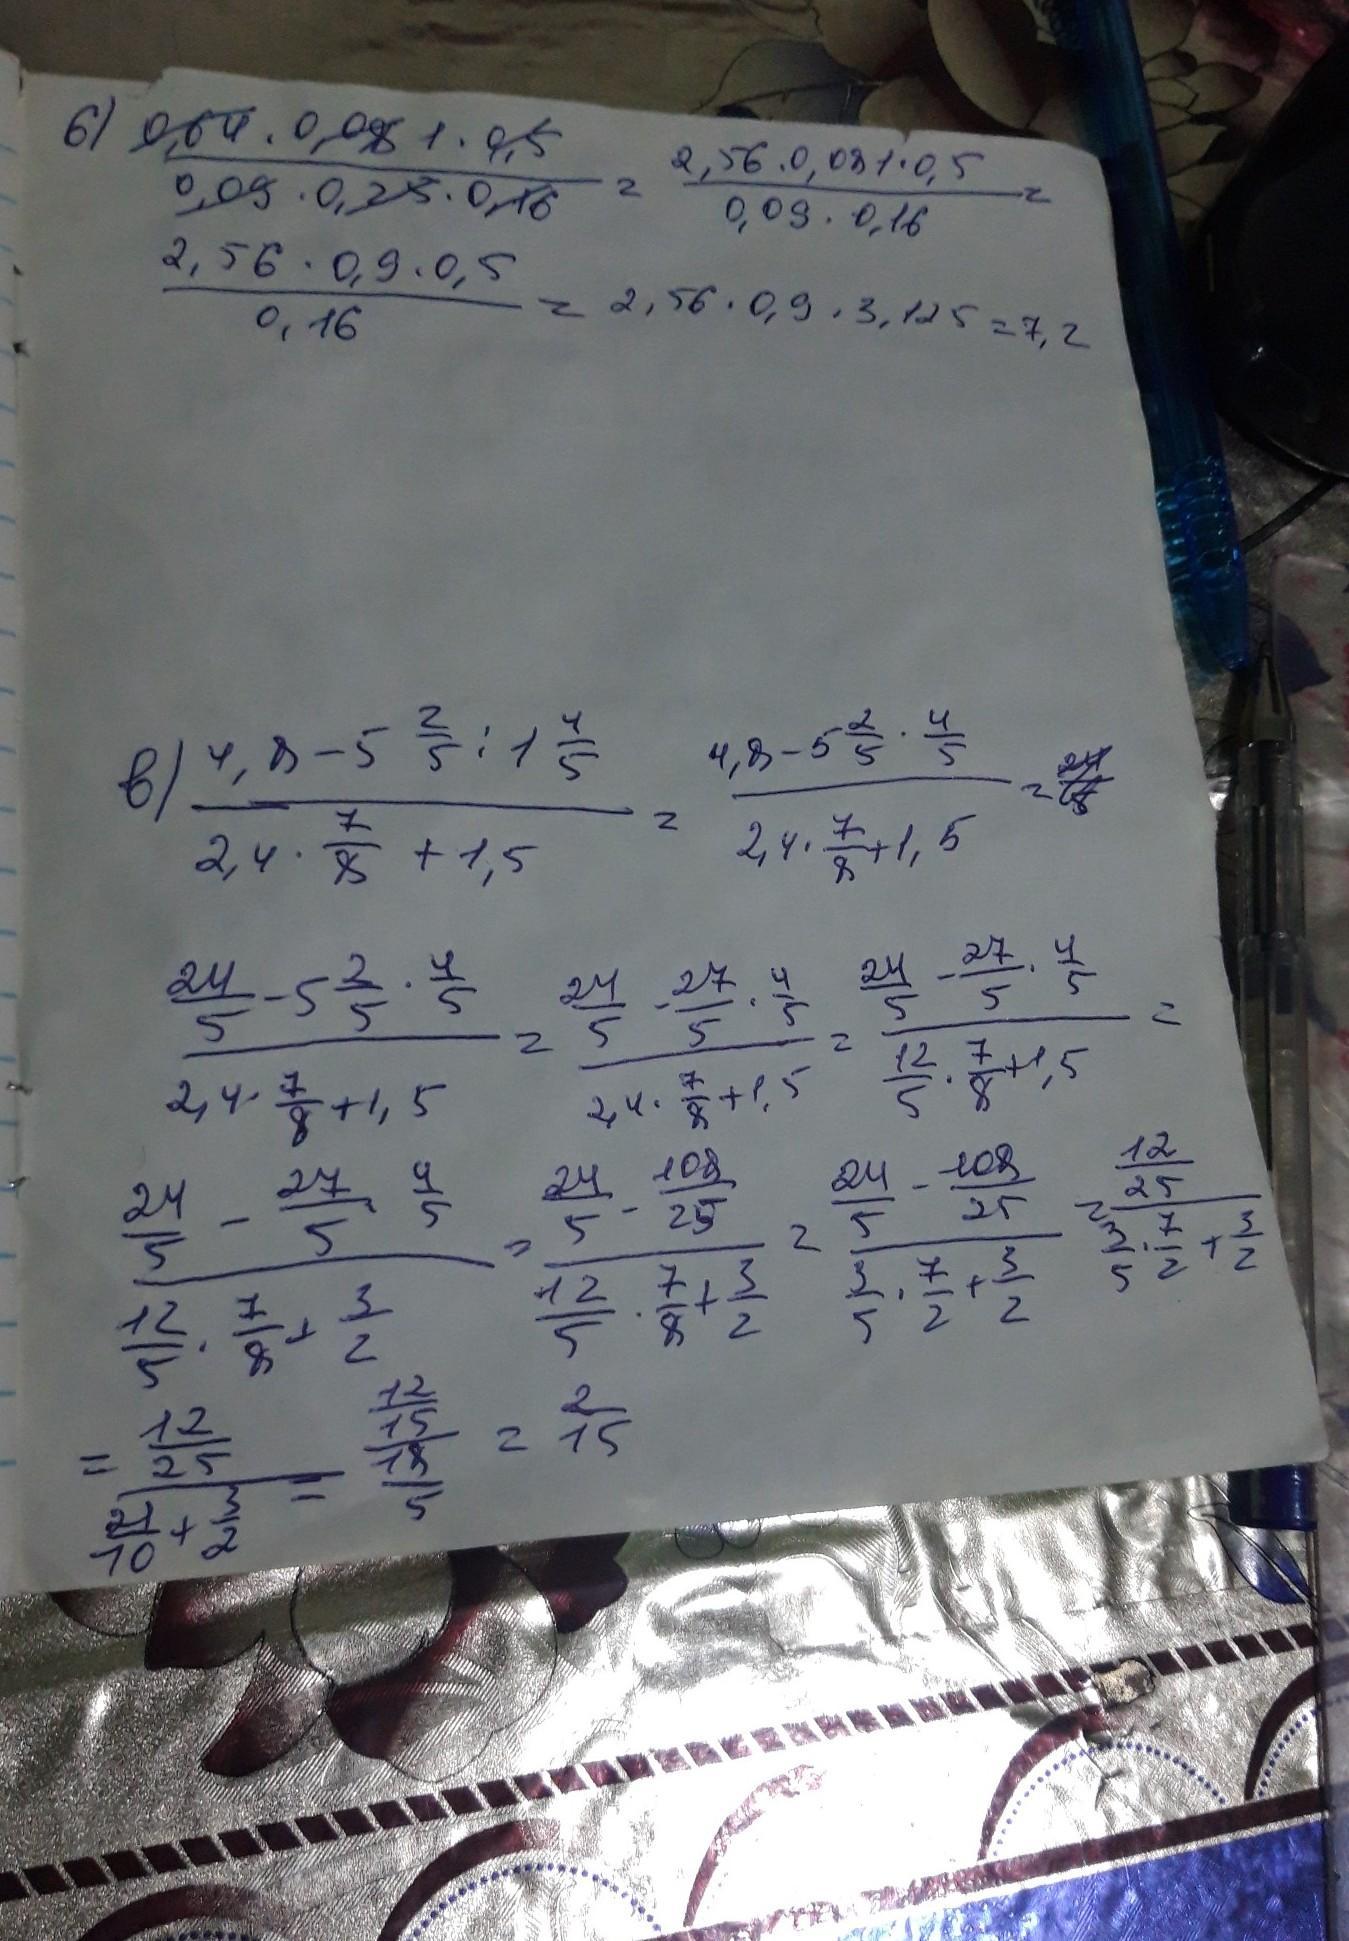 б) 0,64 · 0,081 · 0,5 / 0,09 · 0,25 · 0,16 = 2,56 · 0,081 · 0,5 / 0,09 · 0,16 =
2,56 · 0,9 · 0,5 / 0,16 = 2,56 · 0,9 · 3,125 = 7,2
в) 4,8 - 5 2/5 : 1 4/5 / 2,4 · 7/8 + 1,5 = 4,8 - 5 2/5 · 4/5 / 2,4 · 7/8 + 1,5 =
24/5 - 5 2/5 · 4/5 / 2,4 · 7/8 + 1,5 = 24/5 - 27/5 · 4/5 / 2,4 · 7/8 + 1,5 = 24/5 - 27/5 · 4/5 / 12/5 · 7/8 + 1,5 =
24/5 - 27/5 · 4/5 / 12/5 · 7/8 + 3/2 = 24/5 - 108/25 / 12/5 · 7/8 + 3/2 = 24/5 - 108/25 / 3/5 · 7/2 + 3/2 = 12/25 / 3/5 · 7/2 + 3/2
= 12/25 / 21/10 + 3/2 = 12/15 / 18/5 = 2/15